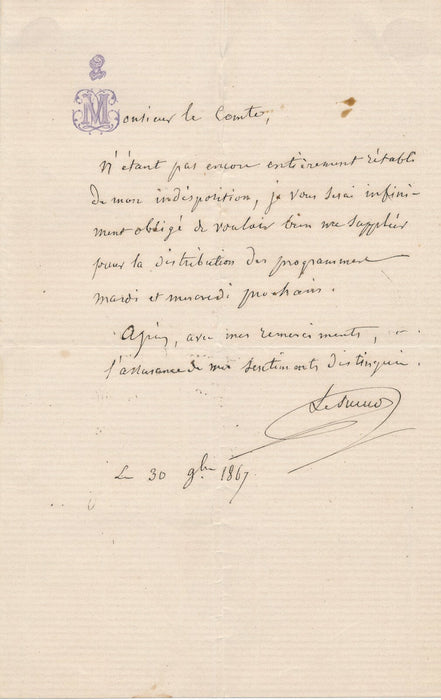 Monsieur le Comte,
N'étant pas encore entièrement rétabli
de mon indisposition, je vous serai infini-
ment obligé de vouloir bien me suppléer
pour la distribution des programmes
mardi et mercredi prochain.
Agréez, avec mes remerciments,
l'assurance de mes sentiments distingués.
Le 30 9bre 1867.